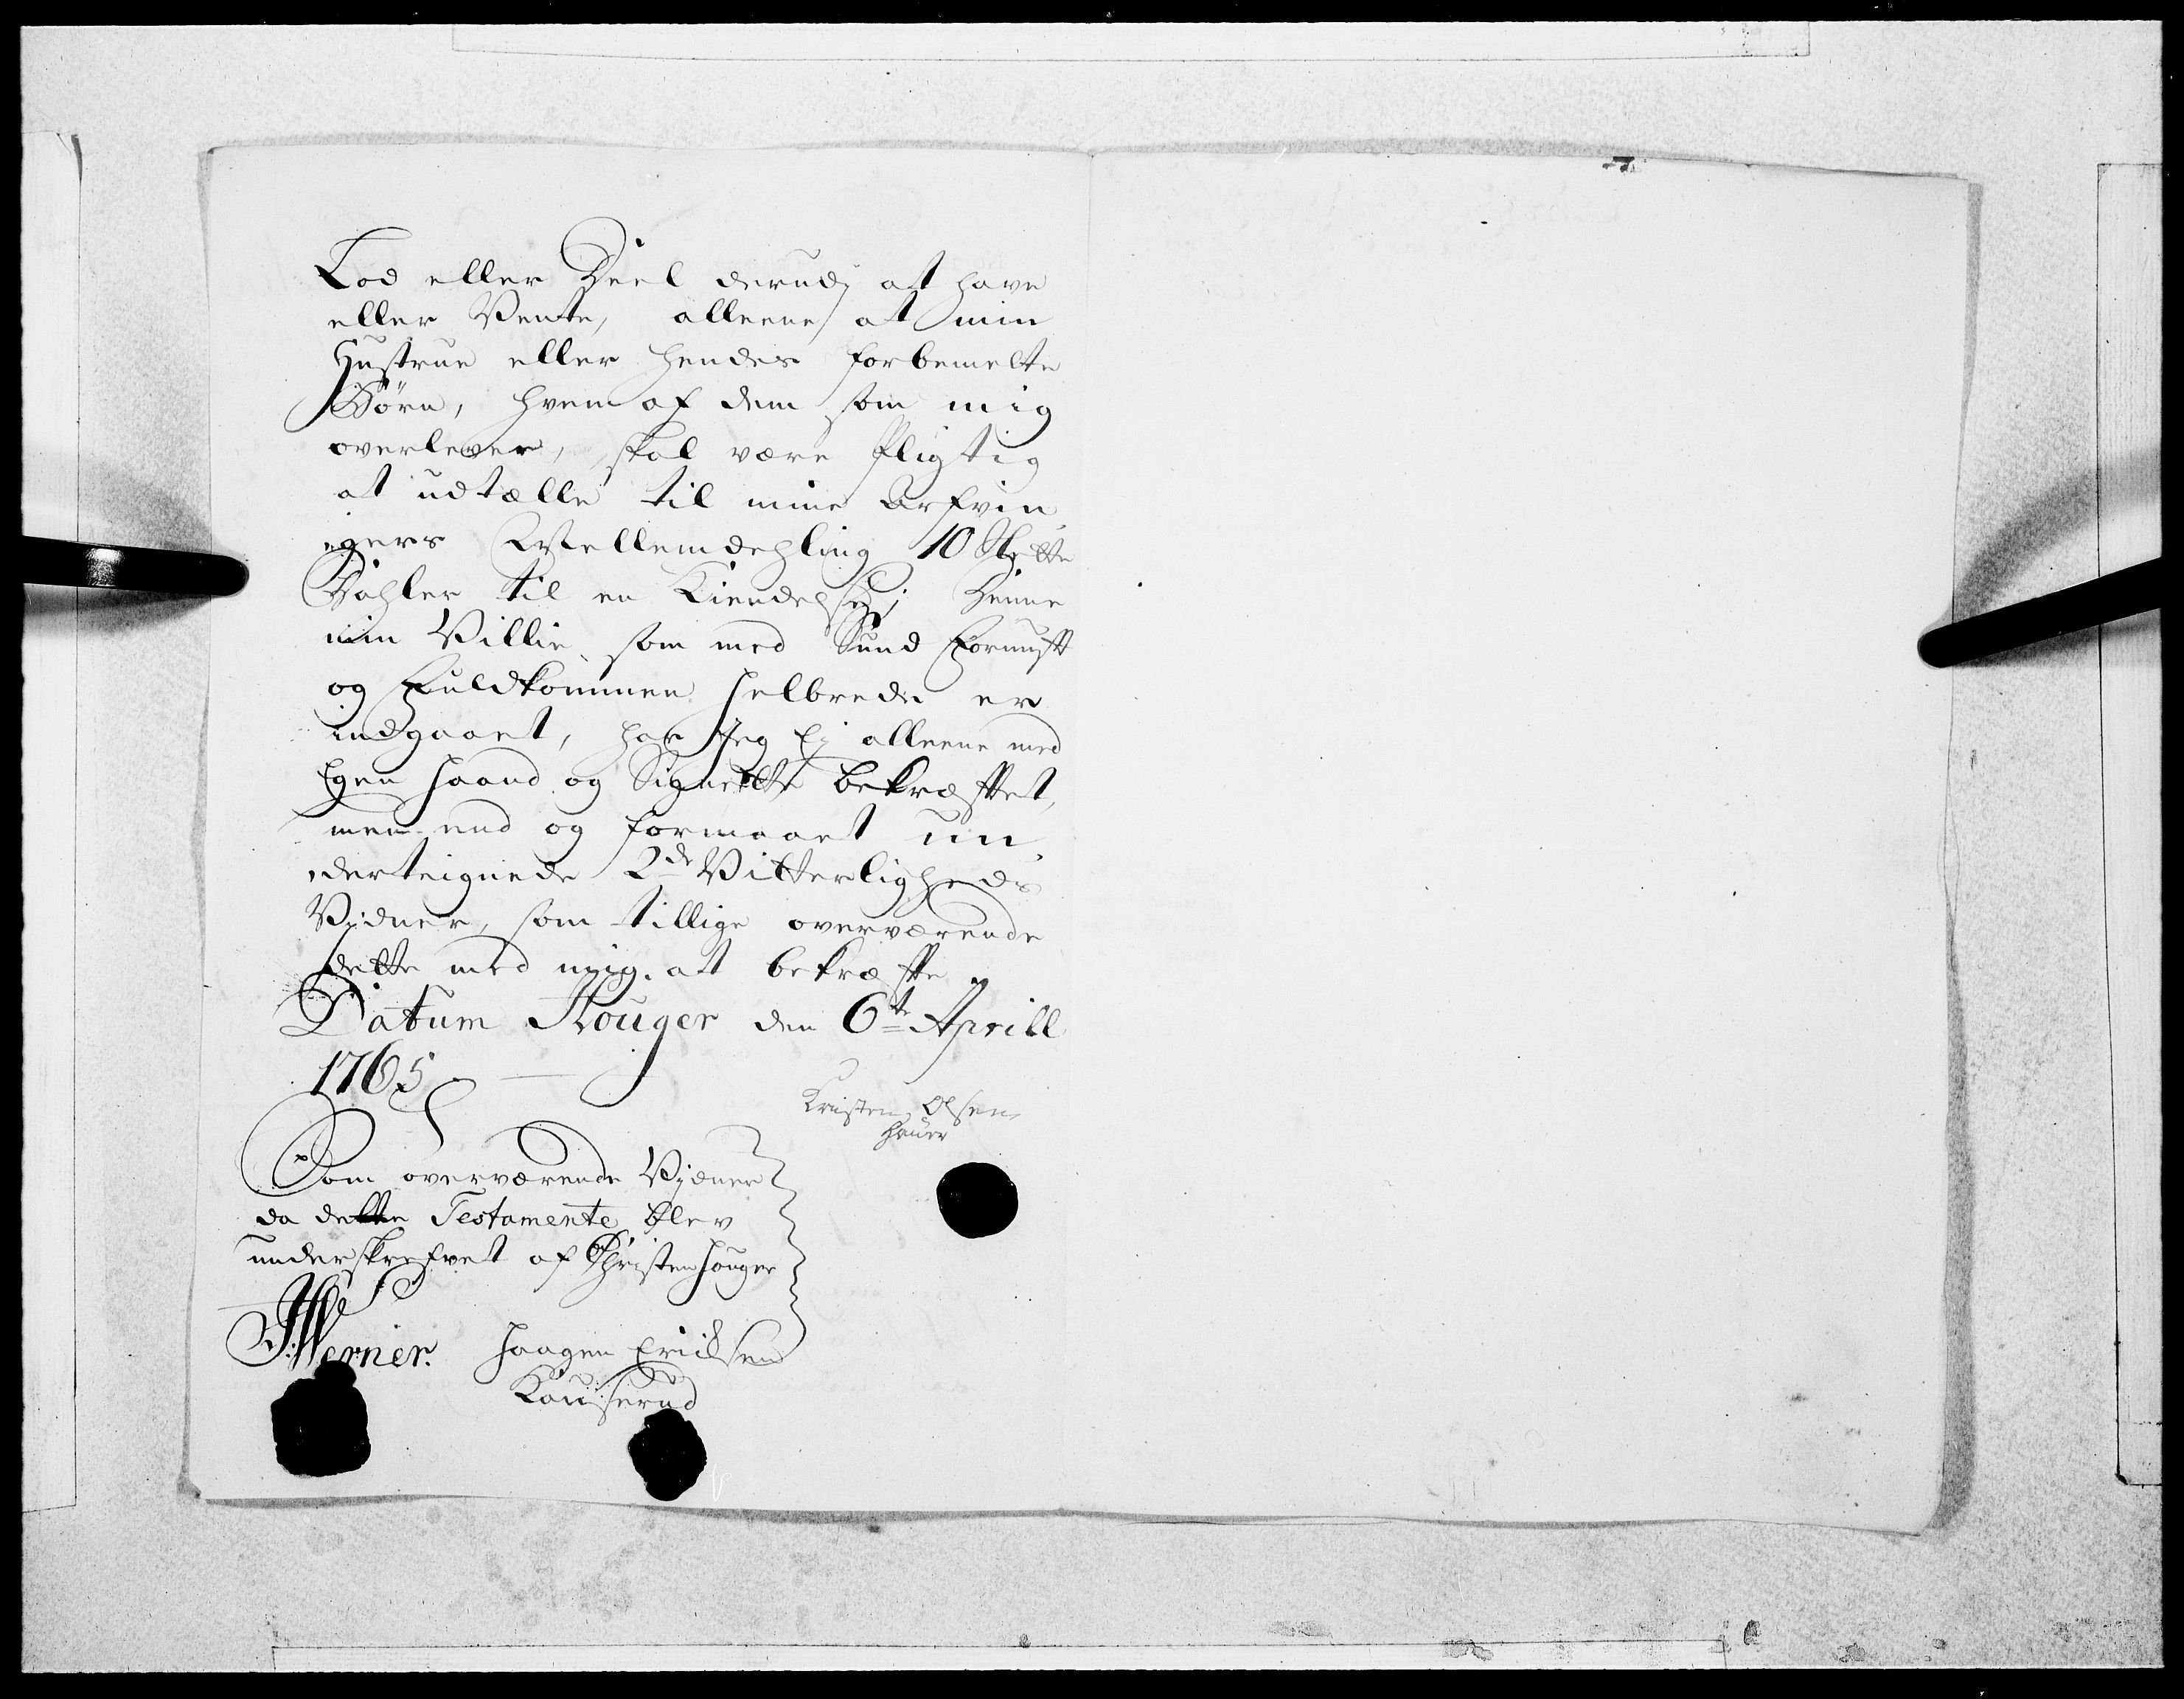 Lod eller Deel derudj at have
eller Vente, alleene at min
Hustrue eller hendes forbemelte
Børn, hvem af dem som mig
overlever, skal være Pligtig
at udtælle til mine Arfvin
gers Mellemdehling 10 Slette
Dahler til en Kiendelse; Denne
min Villie, som med Sund Fornuft
og Fuldkommen helbrede er
indgaaet, har Jeg Ej alleene med
Egen haand og Signette bekræfftet,
men end og formaaet un
derteignede 2de Vitterligheds
Vidner, som tillige overværende
dette med mig at bekræffte
Datum Houger den 6te Aprill
1765
Kristen Olsen
Houer
Som overværende Vidner
da dette Testamente blev
underskrefvet af Christen Houger
Werner. Haagen Ericksen
Kauserud